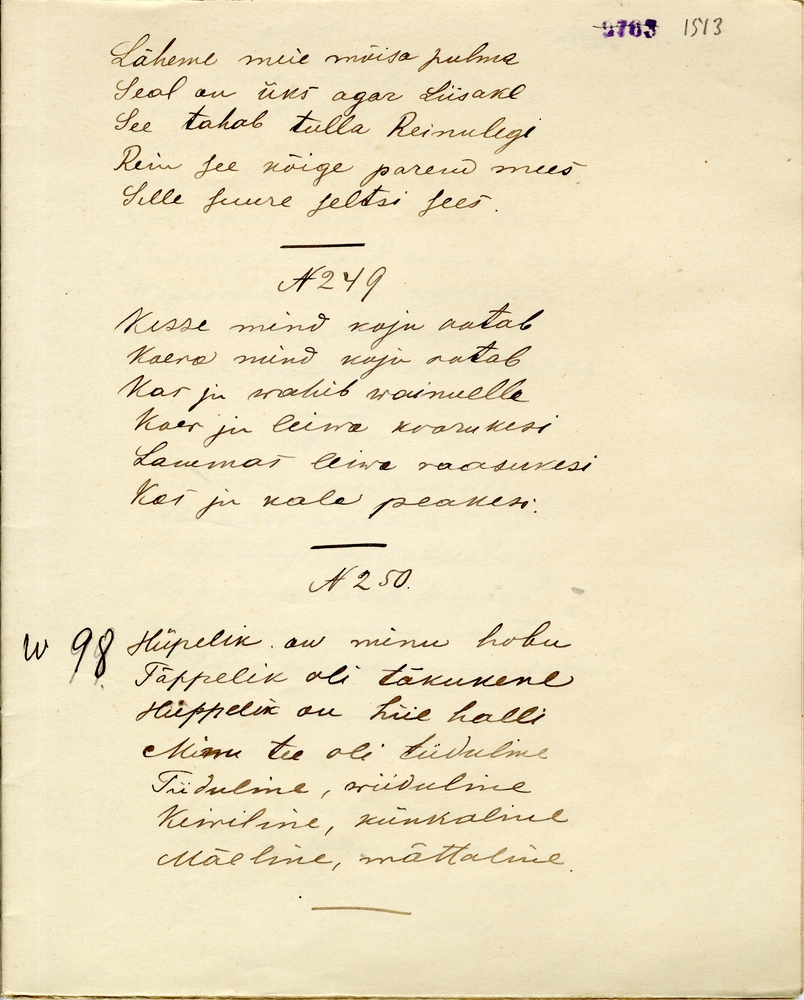 9763 1513
Läheme meie mõisa pulma
Seal on üks agar Liisake
See tahab tulla Reinulegi
Rein see kõige parem mees
Selle suure seltsi sees.
N 249
Kesse mind koju ootab
Koera mind koju ootab
Kas ju wahib wainuelle
Koer ju leiwa koorukesi
Lammas leiwa raasukesi
Kas ju kala peakesi.
N 250.
W 98 Hüpelik on minu hobu
Täppelik oli täkukene
Hüppelik on hiie halli
Minu tee oli tiiduline
Tiiduline, wiiduline
Keiriline, künkaline
Mäeline, mättaline.